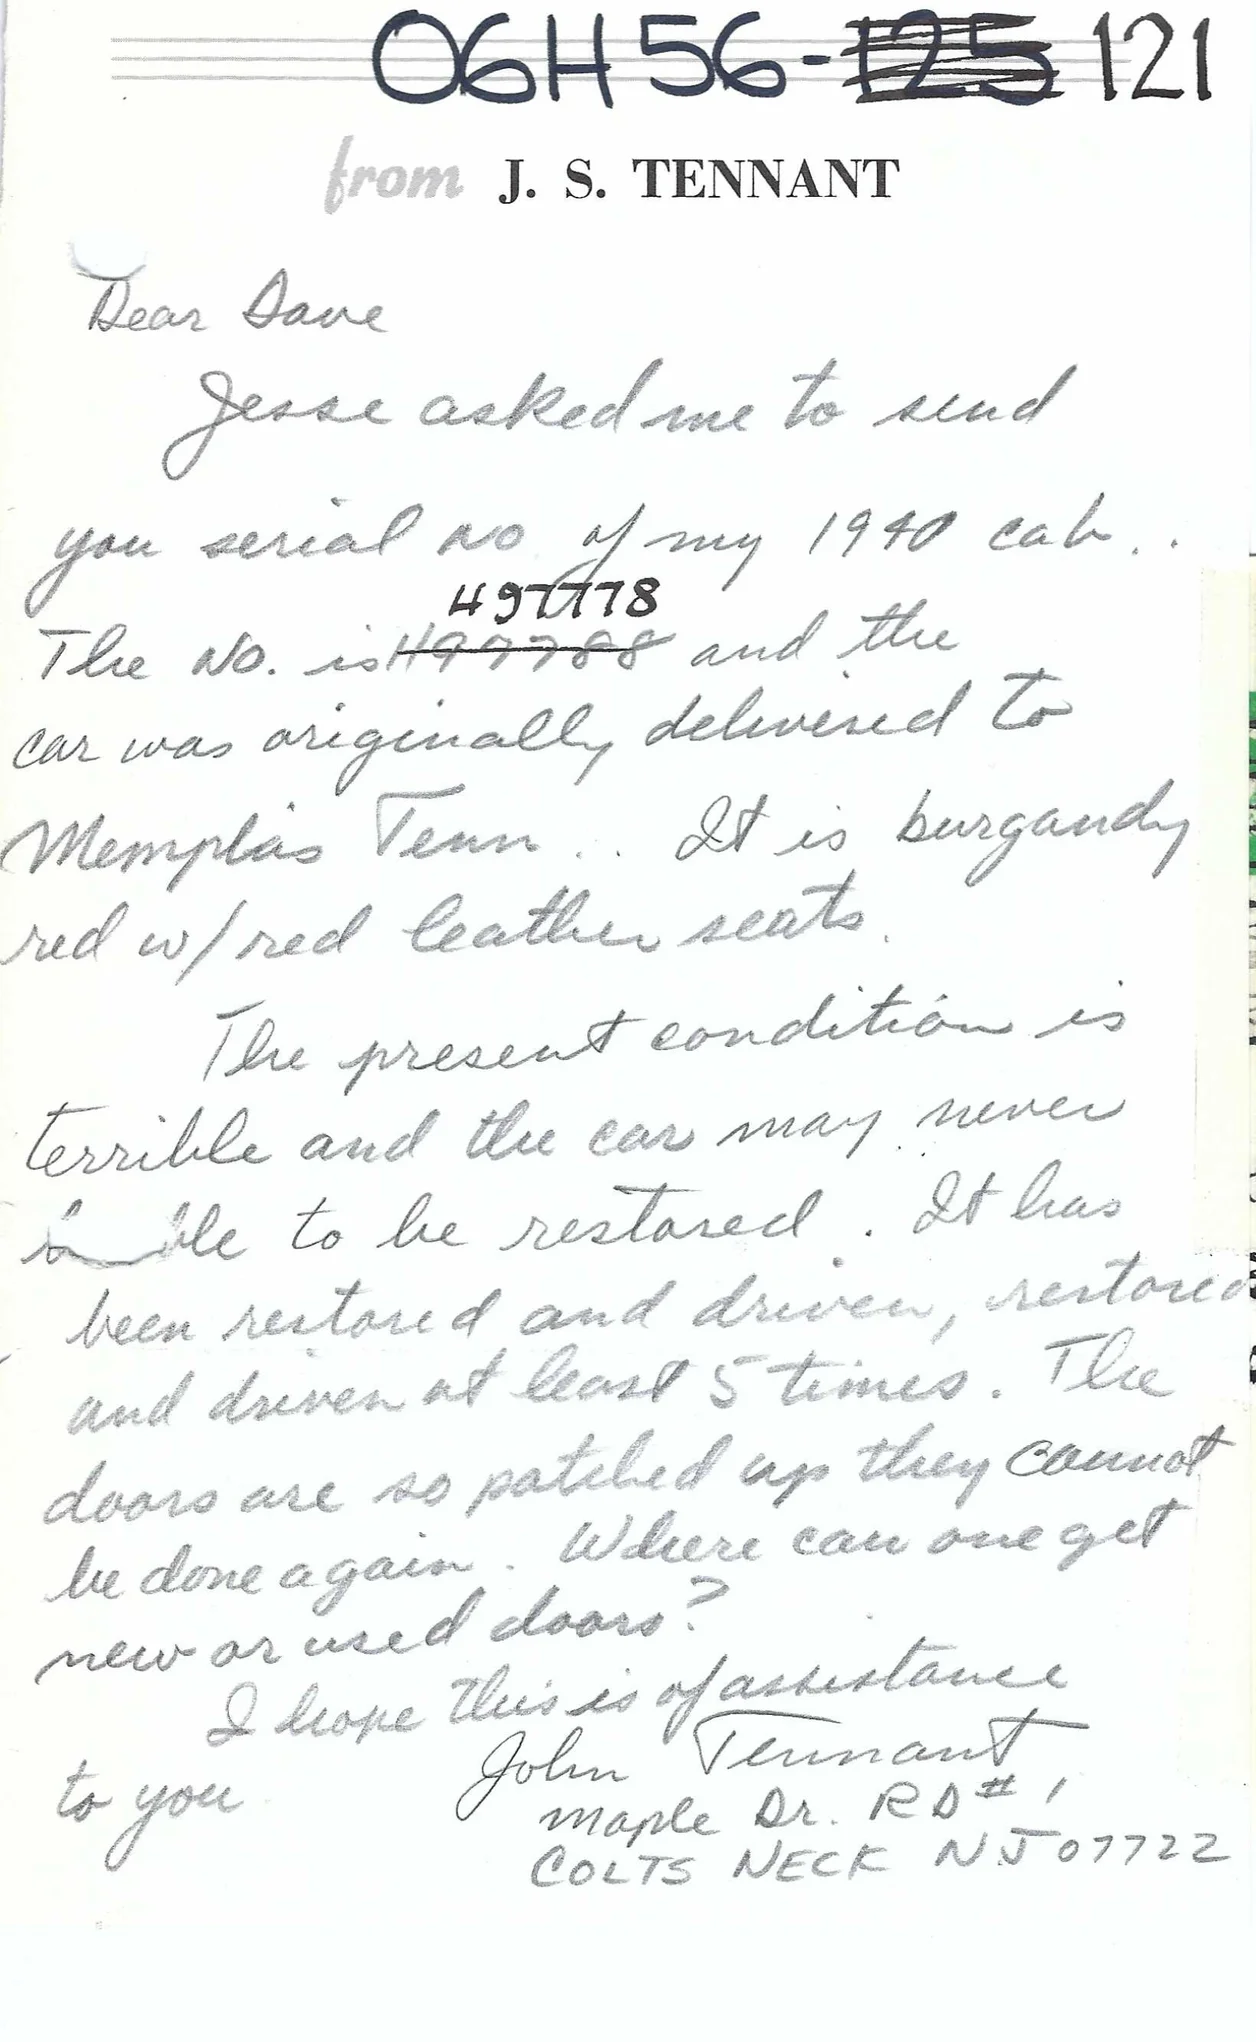 06H56-125 121
from J. S. TENNANT
Dear Dave
Jesse asked me to send
you serial no of my 1940 cab..
497778
The No. is H97788 and the
car was originally delivered to
Memphis Tenn... It is burgandy
red w/red leather seats.
The present condition is
terrible and the car may never
ble to be restored. It has
been restored and driven, restored
and driven at least 5 times. The
doors are so patched up they cannot
be done again. Where can one get
new or used doors?
I hope this is of assistance
to you
John Tennant
Maple Dr. RD #1
COLTS NECK NJ 07722